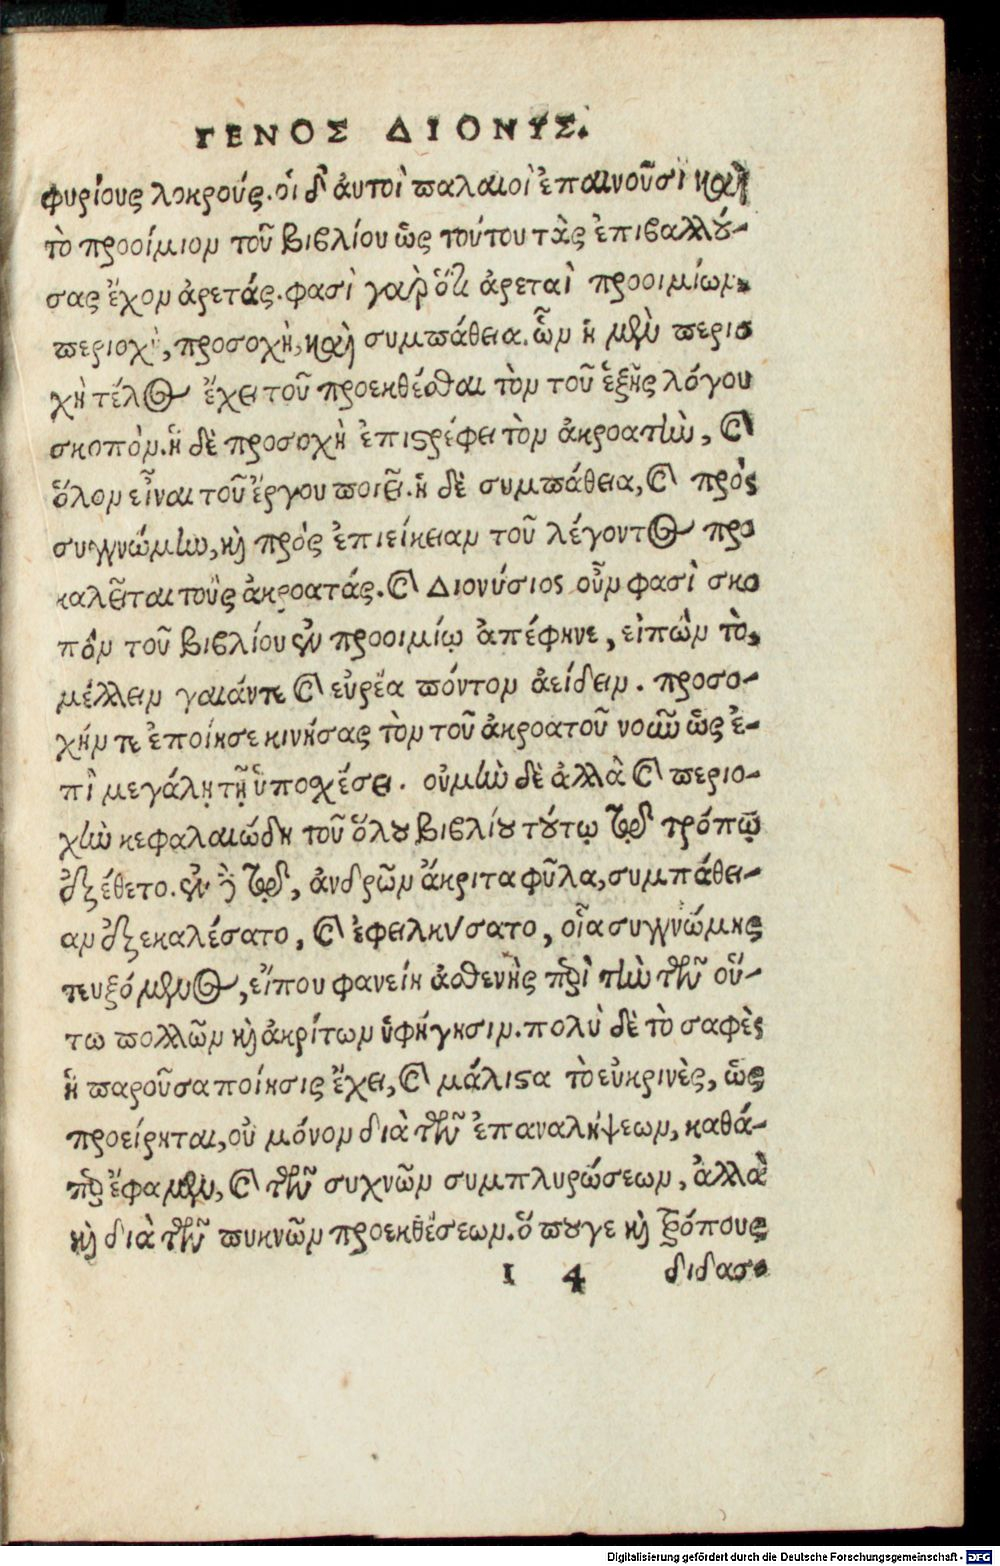 ΓΕΝΟΣ ΔΙΟΝΥΣ.
φυρίους λοκρούς. οἱ δ' ἀυτοὶ παλαιοὶ ἐπαινοῦσι καὶ
τὸ προοίμιον τοῦ βιβλίου ὡς τούτου τὰς ἐπιβαλλού-
σας ἔχον ἀρετάς. φασὶ γαρ ὅτι ἀρεταὶ προοιμίων.
περιοχὴ, προσοχὴ, καὶ συμπάθεια. ὧν ἡ μὲν περιο
χὴ τέλος ἔχει τοῦ προεκθέσθαι τὸν τοῦ ἑξῆς λόγου
σκοπὸν. ἡ δὲ προσοχὴ ἐπιϛρέφει τὸν ἀκροατὴν, καὶ
ὅλον εἶναι τοῦ ἔργου ποιεῖ. ἡ δὲ συμπάθεια, καὶ πρὸς
συγγνώμην, καὶ πρὸς ἐπιείκειαν τοῦ λέγοντος προ
καλεῖται τοὺς ἀκροατάς. καὶ Διονύσιος οὖν φασὶ σκο
πὸν τοῦ βιβλίου ἐν προοιμίῳ ἀπέφηνε, εἰπὼν τὸ,
μέλλειν γαιάν τε καὶ εὐρέα πόντον ἀείδειν. προσο-
χήν τε ἐποίησε κινήσας τὸν τοῦ ἀκροατοῦ νοῦν ὡς ἐ-
πὶ μεγάλῃ τῇ ὑποσχέσει. οὐ μὴν δὲ ἀλλὰ καὶ περιο-
χὴν κεφαλαιώδη τοῦ ὅλου βιβλίου τούτῳ τῷ τρόπῳ
ἐξέθετο. ἐν δὲ τῷ, ἀνδρῶν ἄκριτα φῦλα, συμπάθει-
αν ἐξεκαλέσατο, καὶ ἐφειλκύσατο, οἷα συγγνώμης
τευξόμενος, εἴπου φανείη ἀσθενὴς περὶ τὴν τῶν οὕ-
τω πολλῶν καὶ ἀκρίτων ὑφήγησιν. πολὺ δὲ τὸ σαφὲς
ἡ παροῦσα ποίησις ἔχει, καὶ μάλιϛα τὸ εὐκρινὲς, ὡς
προείρηται, οὐ μόνον διὰ τῶν ἐπαναλήψεων, καθά-
περ ἔφαμεν, καὶ τῶν συχνῶν συμπλυρώσεων, ἀλλὰ
καὶ διὰ τῶν πυκνῶν προεκθέσεων. ὅ πουγε καὶ τρόπους
I 4 διδασ-
Digitalisierung gefördert durch die Deutsche Forschungsgemeinschaft - DFG